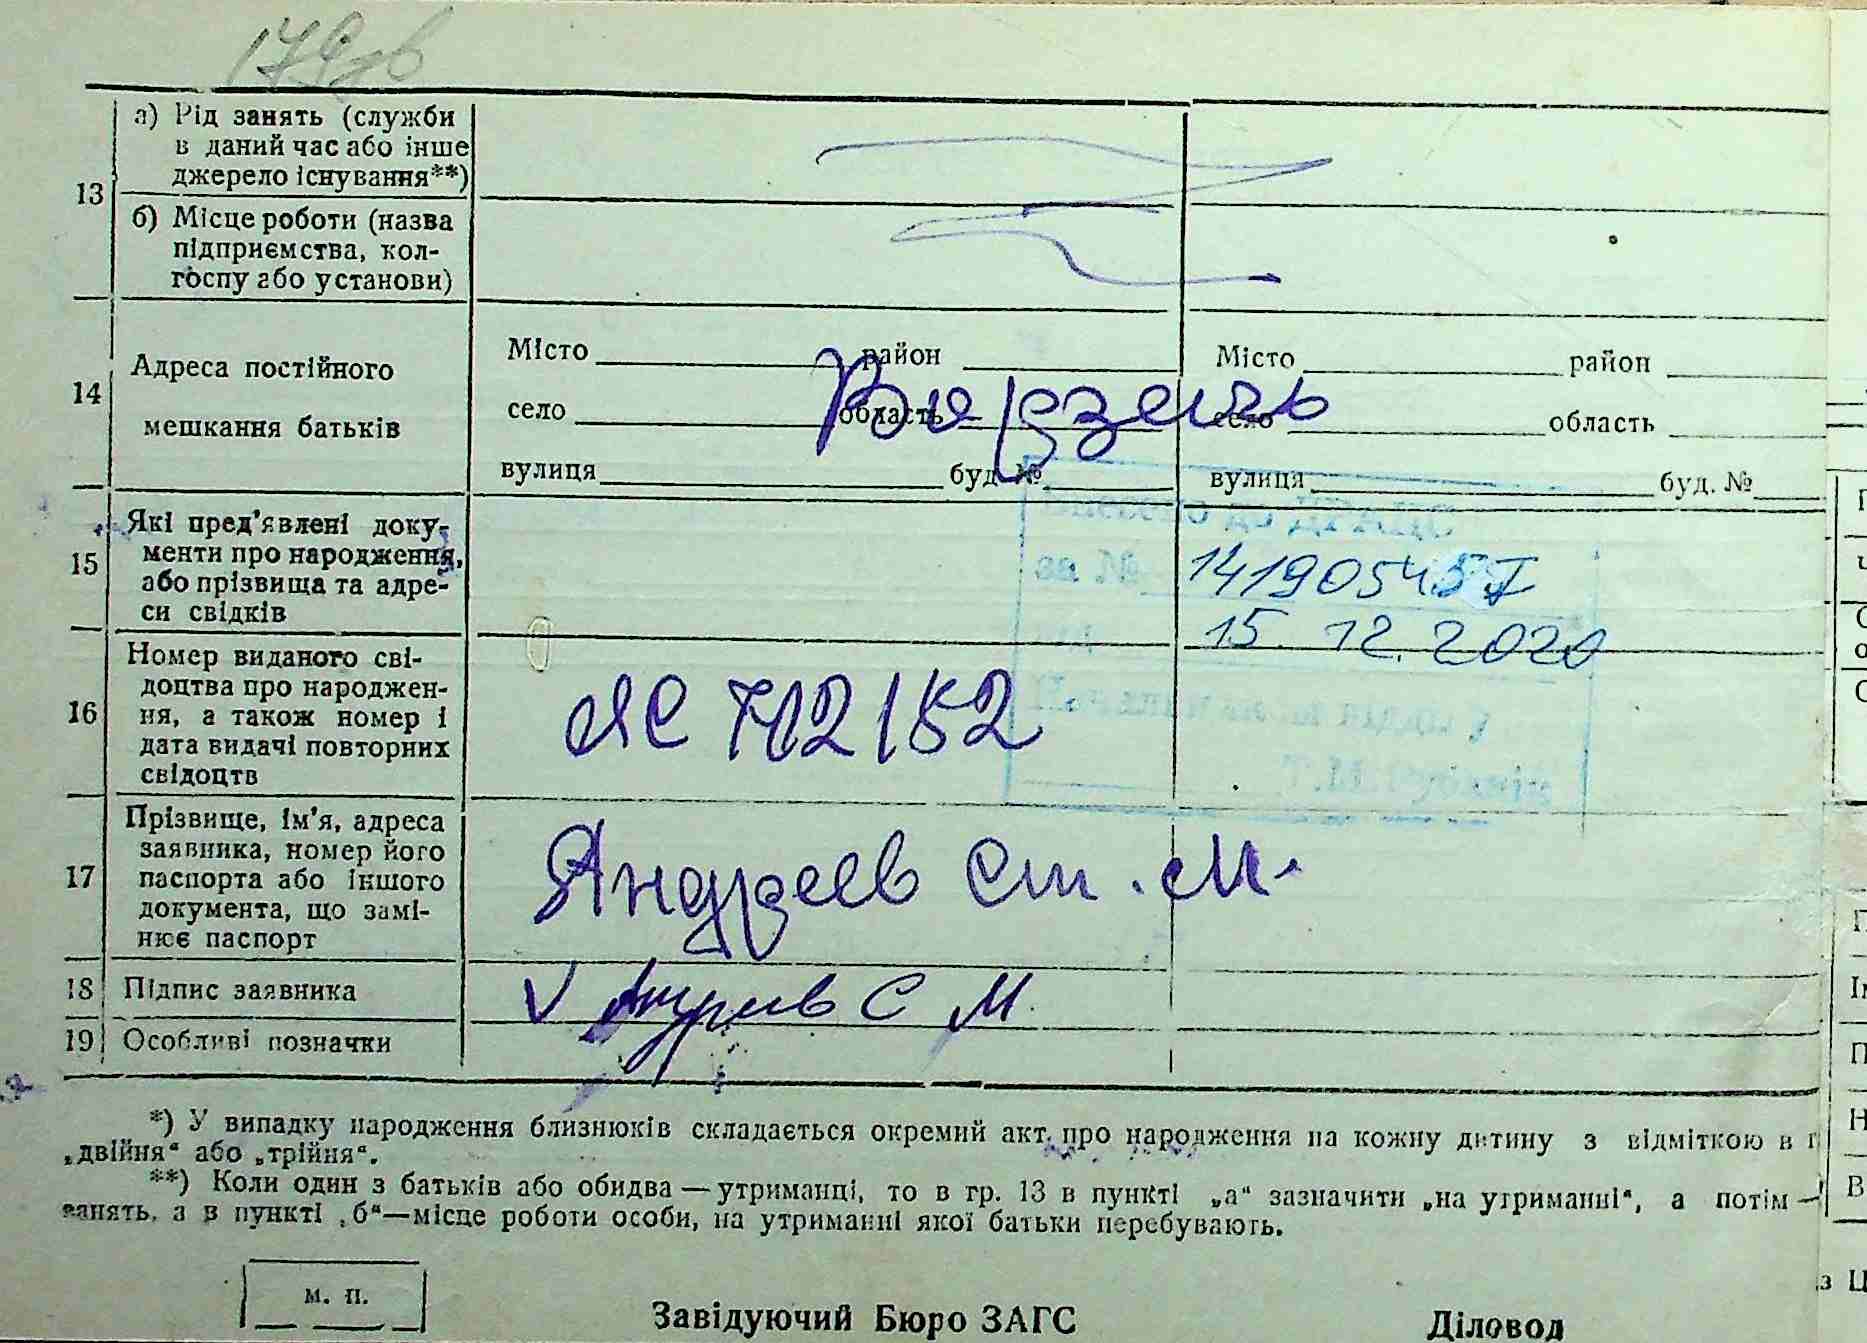 179зв
13
а) Рід занять (служби
в даний час або інше
джерело існування**)
б) Місце роботи (назва
підприємства, кол-
госпу або установи)
14
Адреса постійного
мешкання батьків
Місто район
село область
вулиця буд. №
Місто район
село область
вулиця буд. №
15
Які пред'явлені доку-
менти про народження,
або прізвища та адре-
си свідків
15. 12. 2020
16
Номер виданого сві-
доцтва про народжен-
ня, а також номер і
дата видачі повторних
свідоцтв
ЯС 712152
17
Прізвище, ім'я, адреса
заявника, номер його
паспорта або іншого
документа, що замі-
нює паспорт
Андреев Ст. М.
18 Підпис заявника
С М.
19 Особливі позначки
*) У випадку народження близнюків складається окремий акт про народження на кожну дитину з відміткою в г
„двійня“ або „трійня“.
**) Коли один з батьків або обидва — утриманці, то в гр. 13 в пункті „а“ зазначити „на утриманні“, а потім —
занять, а в пункті „б“—місце роботи особи, на утриманні якої батьки перебувають.
м. п.
Завідуючий Бюро ЗАГС Діловод